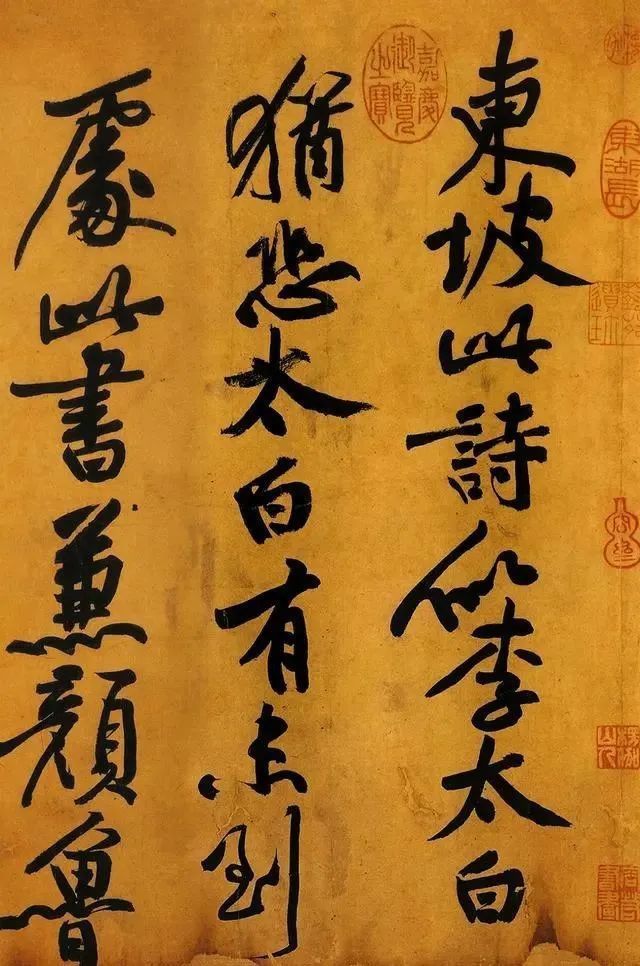 東坡此詩似李太白
猶恐太白有未到
處此書兼顏魯
嘉慶御覽之寶
東湖長
楞伽山人